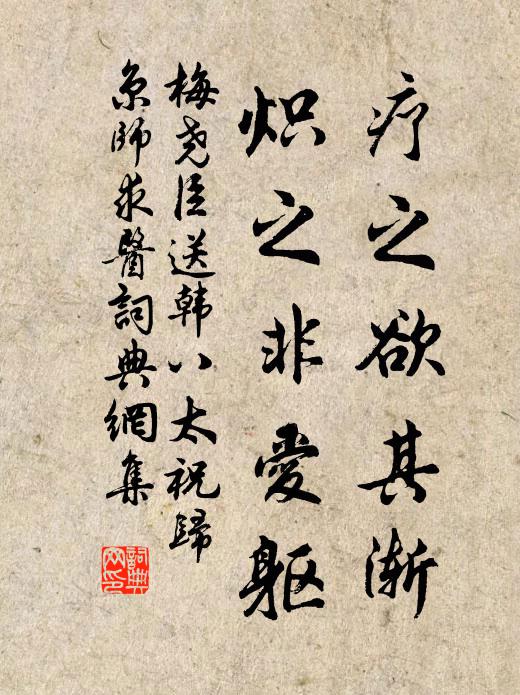 疗之欲其渐
炽之非愛躯
梅尧臣送韩八太祝歸
京師求醫詞典網集
詞典
网印